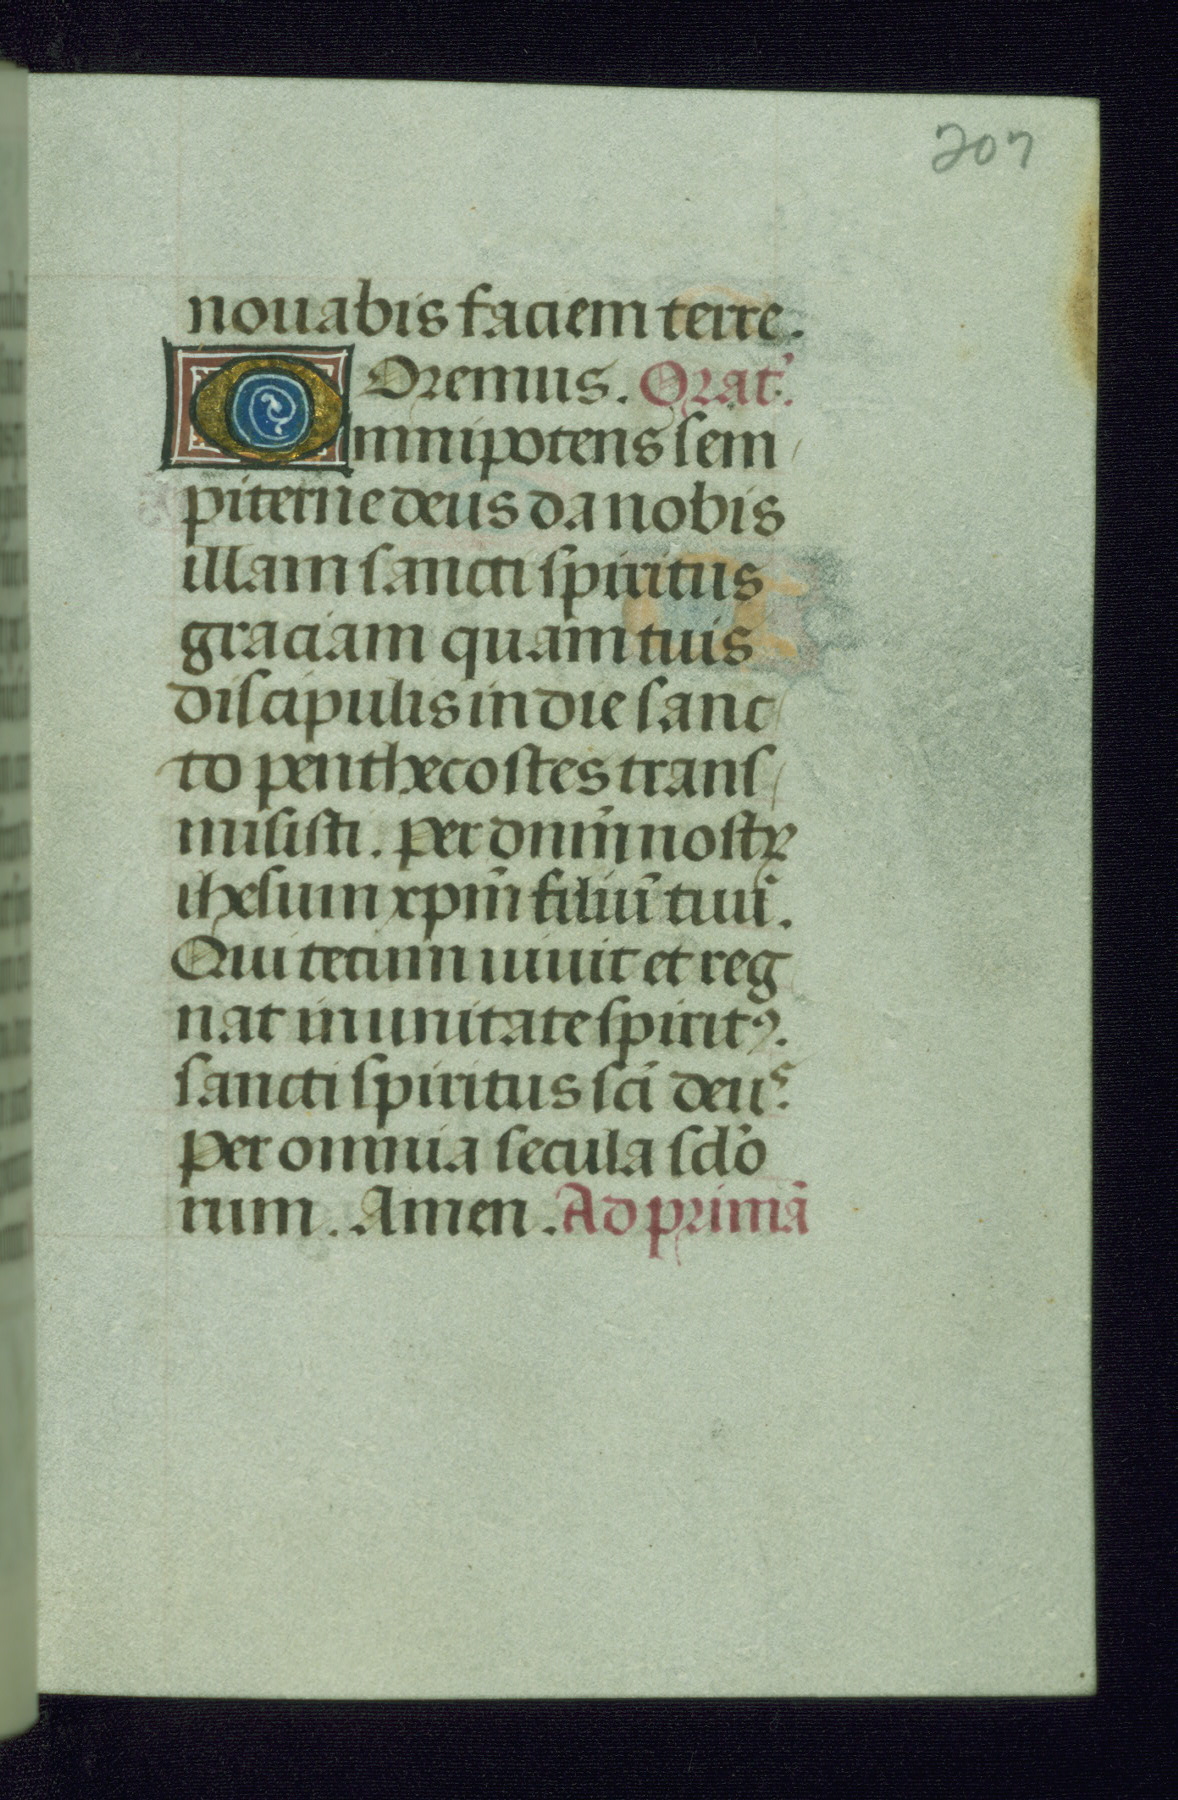 207
nouabis faciem terre.
Oremus. Orat'.
Omnipotens sem
piterne deus da nobis
illam sancti spiritus
graciam quam tuis
discipulis in die sanc
to penthecostes trans
misisti. Per dnm̄ nostrꝝ
ihesum xpm̄ filiū tuū.
Qui tecum uiuit et reg
nat in unitate spiritꝰ.
sancti spiritus sci̅ deus.
Per omnia secula sclo̅
rum. Amen. Ad primā